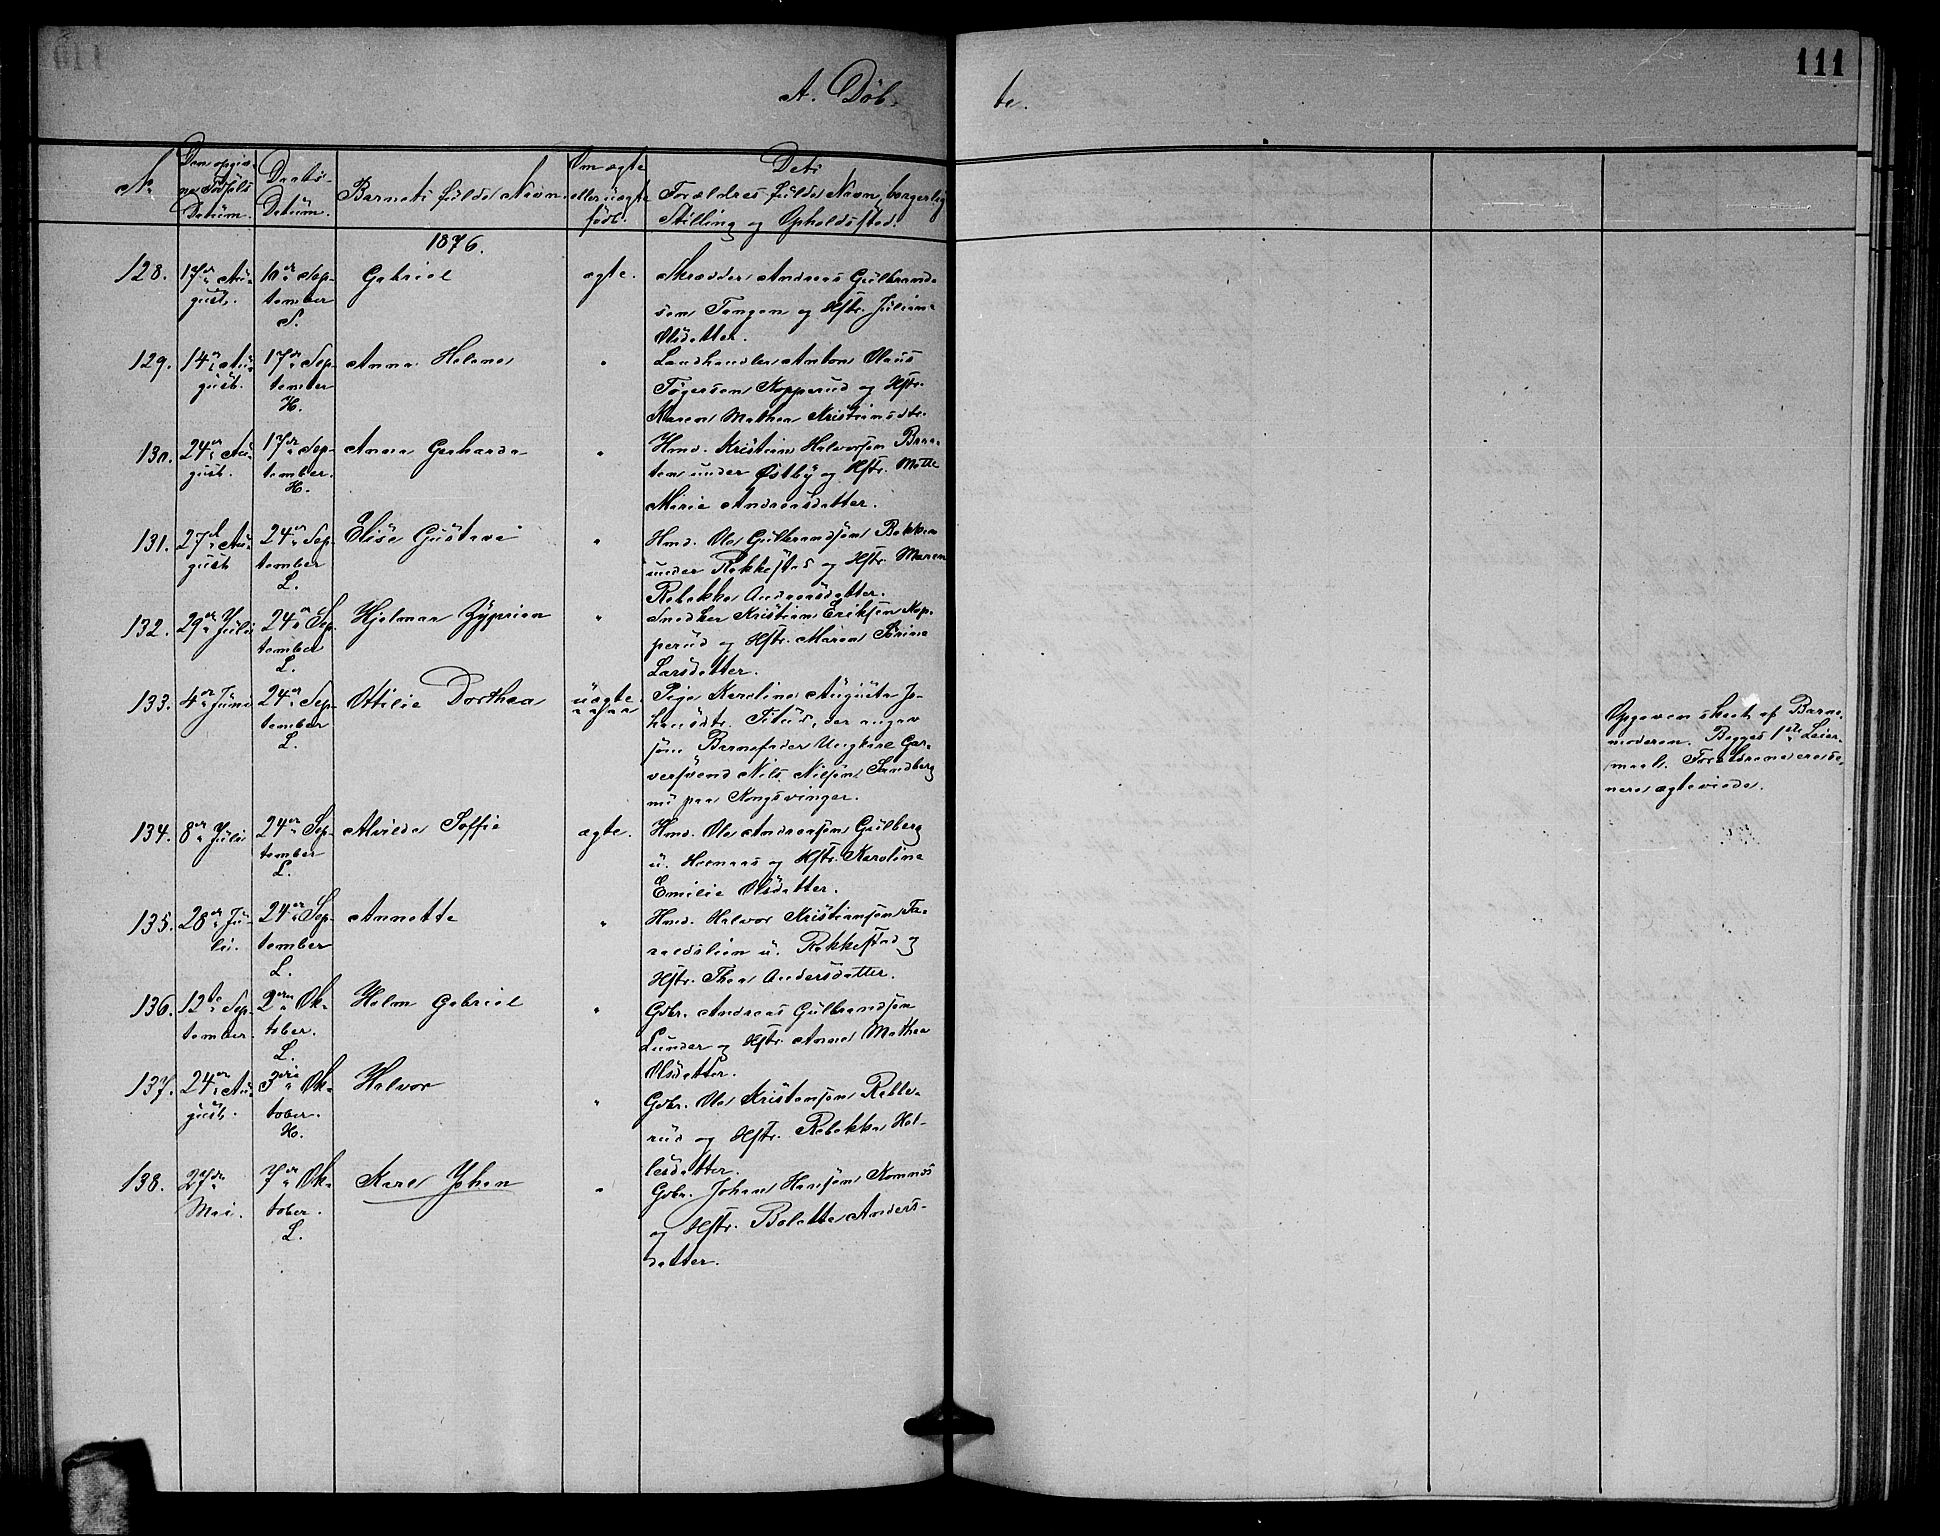 111
A. Døb-
te.
No
Den opgiv-
ne Fødsels
Datum.
Daabs-
Datum.
Barnets fulde Navn
Om ægte
eller uægte
født.
Dets
Forældres fulde Navn, borgerlig
Stilling og Opholdssted.
1876.
128.
17de Au-
gust.
10de Sep-
tember
S.
Gabriel
ægte.
Skrædder Andreas Gulbrand-
sen Tangen og Hstr. Juliane
Olsdatter.
129.
14de Au-
gust.
17de Sep-
tember
H.
Anna Helene
"
Landhandler Anton Olaus
Tøgersen Kopperud og Hstr.
Karen Mathea Kristiansdtr.
130.
24de Au-
gust.
17de Sep-
tember.
H.
Anna Gerharda
"
Hmd. Kristian Halvorsen Braa-
ten under Østby og Hstr. Mette
Marie Andreasdatter.
131.
27d Au-
gust
24de Sep-
tember
L.
Elise Gustava
"
Hmd. Ole Gulbrandsen Bakken
under Rakkestad og Hstr. Maren
Rebekka Andreasdatter.
132.
29de Juli
24de Sep-
tember
L.
Hjalmar Zyprian
"
Snedker Kristian Eriksen Kop-
perud og Hstr. Maren Serine
Larsdatter.
133.
4de Juni
24de Sep-
tember
L.
Ottilie Dorthea
uægte.
Pige Karoline Augusta Jo-
hansdtr. Titud, der angav
som Barnefader Ungkarl Gar-
versvend Nils Nilsen Sandberg
nu paa Kongsvinger.
Opgaven skeet af Barne-
moderen. Begges 1ste Leier-
maal. Forældrene ere se-
nere ægteviede.
134.
8de Juli
24de Sep-
tember
L.
Alvilde Soffie
ægte.
Hmd. Ole Andreasen Gulberg
u. Hernaes og Hstr. Karoline
Emilie Olsdatter.
135.
28de Ju-
li.
24de Sep-
tember
L.
Annette
"
Hmd. Halvor Kristiansen Ta-
raldslien u. Rakkestad og
Hstr. Thea Andersdatter.
136.
12te Sep-
tember.
2den Ok-
tober.
L.
Holm Gabriel
"
Gbr. Andreas Gulbrandsen
Lunder og Hstr. Anne Mathea
Olsdatter.
137.
24de Au-
gust.
3die Ok-
tober.
H.
Halvor
"
Gbr. Ole Kristensen Rable-
rud og Hstr. Rebekka Hal-
lesdatter.
138.
27de
Mai.
7de Ok-
tober.
L.
Karl Johan
"
Gbr. Johan Hansen Komnæs
og Hstr. Bolette Anders-
datter.